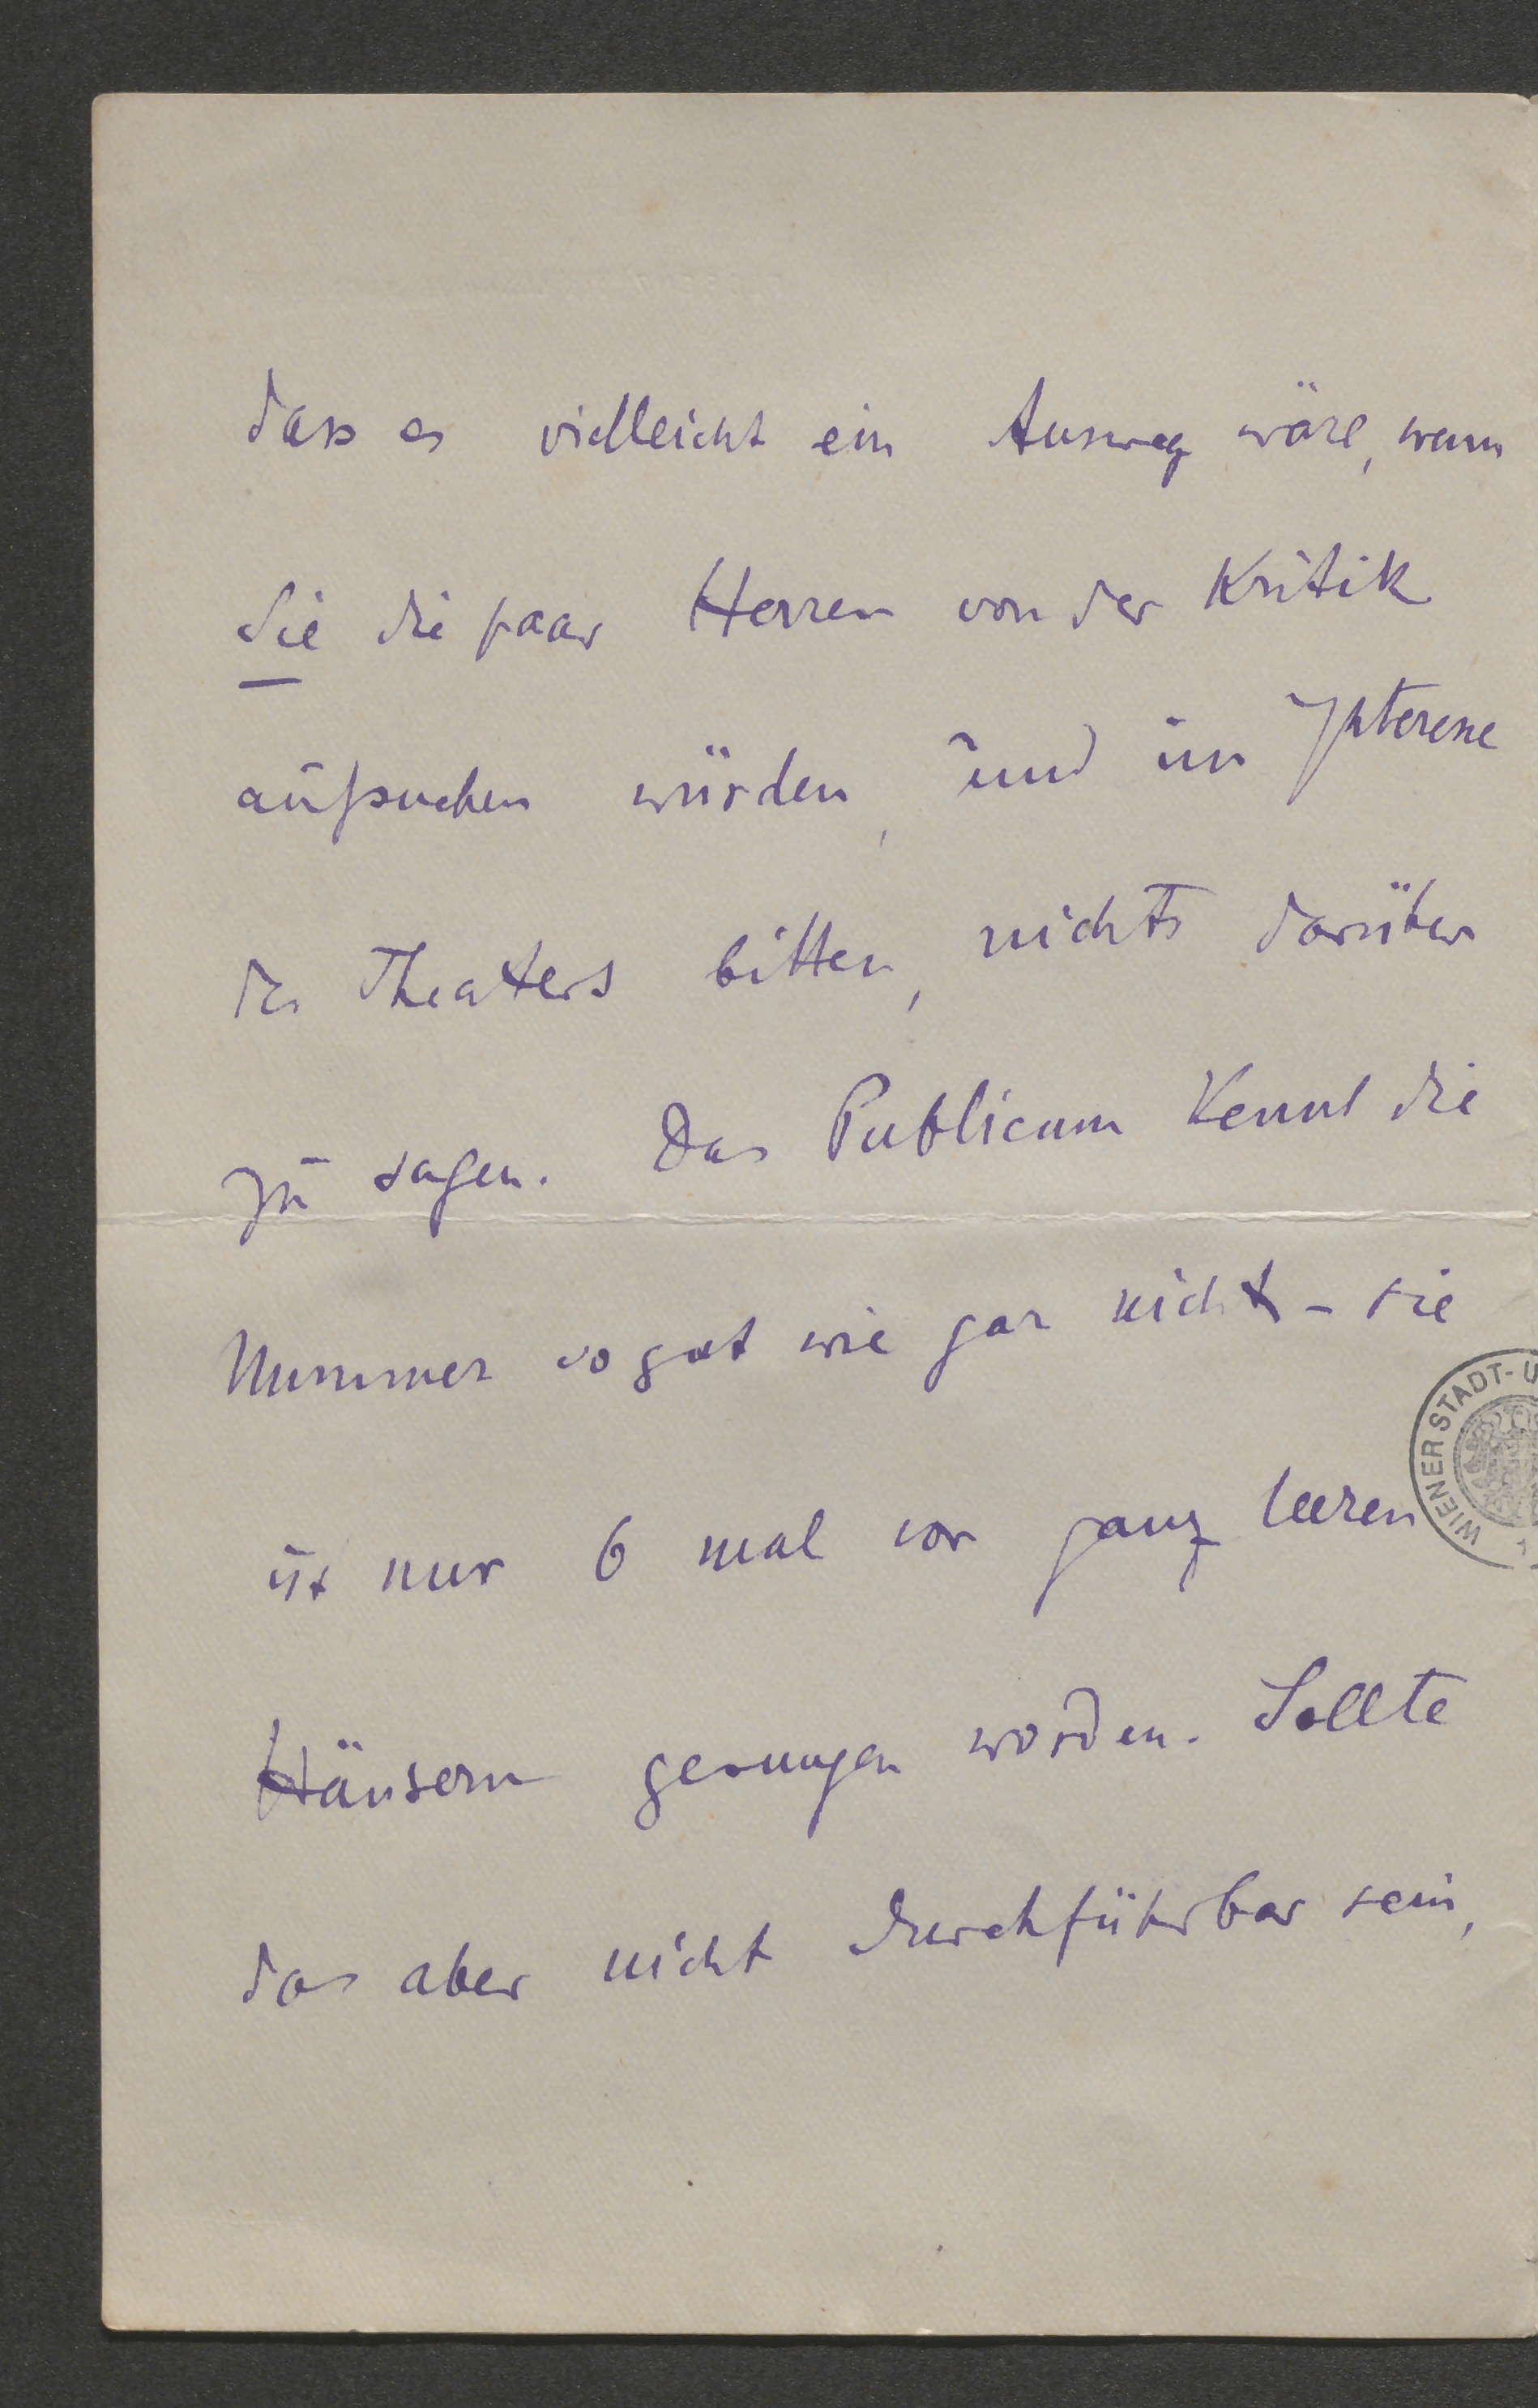 dass es vielleicht ein Ausweg wäre, wenn
Sie die paar Herren von der Kritik
aufsuchen würden, und im Interesse
des Theaters bitten, nichts darüber
zu sagen. Das Publicum kennt die
Nummer so gut wie gar nicht – sie
ist nur 6 mal vor ganz leeren
Häusern gesungen worden. Sollte
das aber nicht durchführbar sein,
WIENER STADT-U